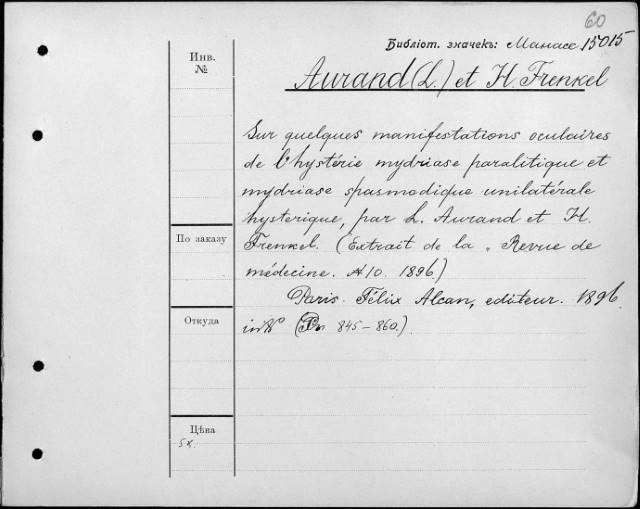 60
Библіот. значекъ: Манасс 15015
Инв.
№
Aurand (L.) et H. Frenkel
Sur quelques manifestations oculaires
de l'hystérie mydriase paralitique et
mydriase spasmodique unilatérale
hysterique, par L. Aurand et H.
По заказу
Frenkel. (Extrait de la „ Revue de
médecine. № 10. 1896)
Paris. Félix Alcan, editeur. 1896
Откуда
in 8° ( 845–860.)
Цѣна